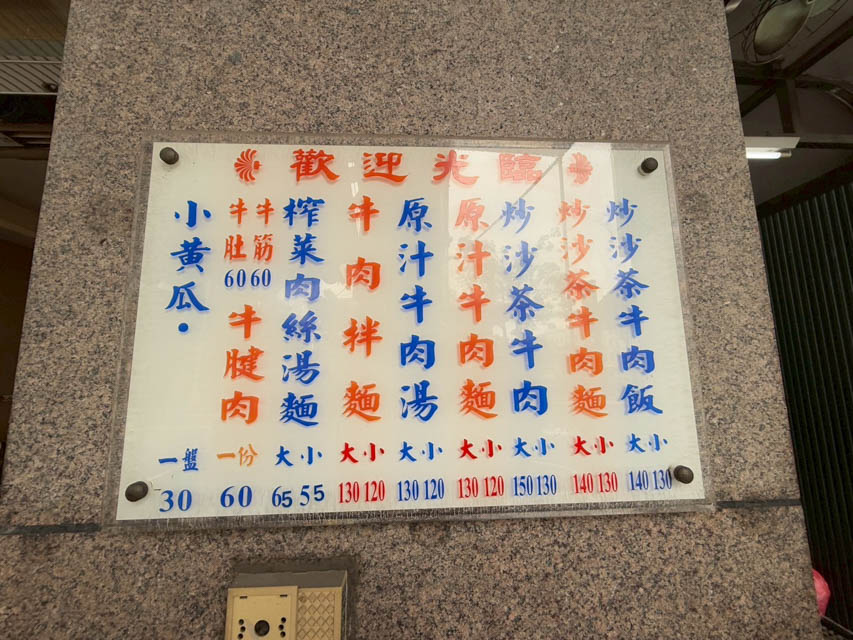 歡迎光臨
炒沙茶牛肉飯 大 小 140 130
炒沙茶牛肉麵 大 小 140 130
炒沙茶牛肉 大 小 150 130
原汁牛肉麵 大 小 130 120
原汁牛肉湯 大 小 130 120
牛肉拌麵 大 小 130 120
榨菜肉絲湯麵 大 小 65 55
牛筋 60
牛肚 60
牛腱肉 一份 60
小黃瓜 一盤 30